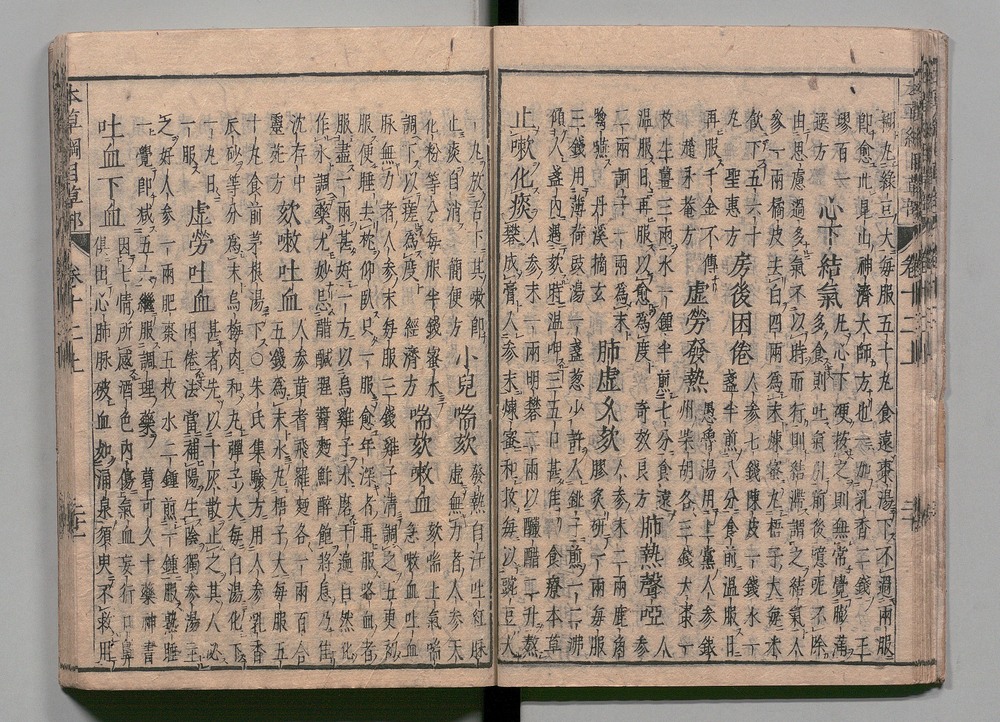 糊丸綠豆大每服五十丸食遠棗湯下不過兩服
即愈此昆山神濟大師方也一加乳香二錢 王
璆百一 心下結氣 凡心下硬按之則無常覺膨滿
選方 多食則吐氣引前後噫呃不除
由思慮過多氣不以時而行則結滯謂之結氣人
參一兩橘皮去白四兩為末煉蜜丸梧子大每米
飲下五六十 房後困倦 人參七錢陳皮一錢水一
丸 聖惠方 盞半煎八分食前溫服日
再服千金不傳 虛勞發熱 愚魯湯用上黨人參銀
趙永菴方 州柴胡各三錢大棗一
枚生薑三兩水一鍾半煎七分食遠 肺熱聲啞 人
溫服日再服以愈為度 奇效良方 參
二兩訶子一兩為末 肺虛久欬 人參末二兩鹿角
噙嚥 丹溪摘玄 膠炙研一兩每服
三錢用薄荷豉湯一盞蔥少許入銚子煎一二沸
傾入盞內遇欬時溫呷三五口甚佳 食療本草
止嗽化痰 人參末一兩明礬二兩以釅醋二升熬
礬成膏入參末煉蜜和收每以豌豆大
一丸放舌下其嗽即 小兒喘欬 發熱自汗吐紅脈
止痰自消 簡便方 虛無力者人參天
花粉等分每服半錢蜜水 喘欬嗽血 欬喘上氣喘
調下以瘥為度 經濟方 急嗽血吐血
脈無力者人參末每服三錢雞子清調之五更初
服便睡去枕仰臥只一服愈年深者再服咯血者
服盡一兩甚好一方以烏雞子水磨千遍自然化
作水調藥尤妙忌醋鹹腥醬麵鮓醉飽將息乃佳
沈存中 欬嗽吐血 人參黃耆飛羅麵各一兩百合
靈苑方 五錢為末水丸梧子大每服五
十丸食前茅根湯下○朱氏集驗方用人參乳香
辰砂等分為末烏梅肉和丸彈子大每白湯化下
一丸日 虛勞吐血 甚者先以十灰散止之其人必
一服 困倦法當補陽生陰獨參湯主
之好人參一兩肥棗五枚水二鍾煎一鍾服熟睡
一覺即減五六繼服調理藥 葛可久十藥神書
吐血下血 因七情所感酒色內傷氣血妄行口鼻
俱出心肺脈破血如湧泉須臾不救用
本草綱目草部 卷十二上